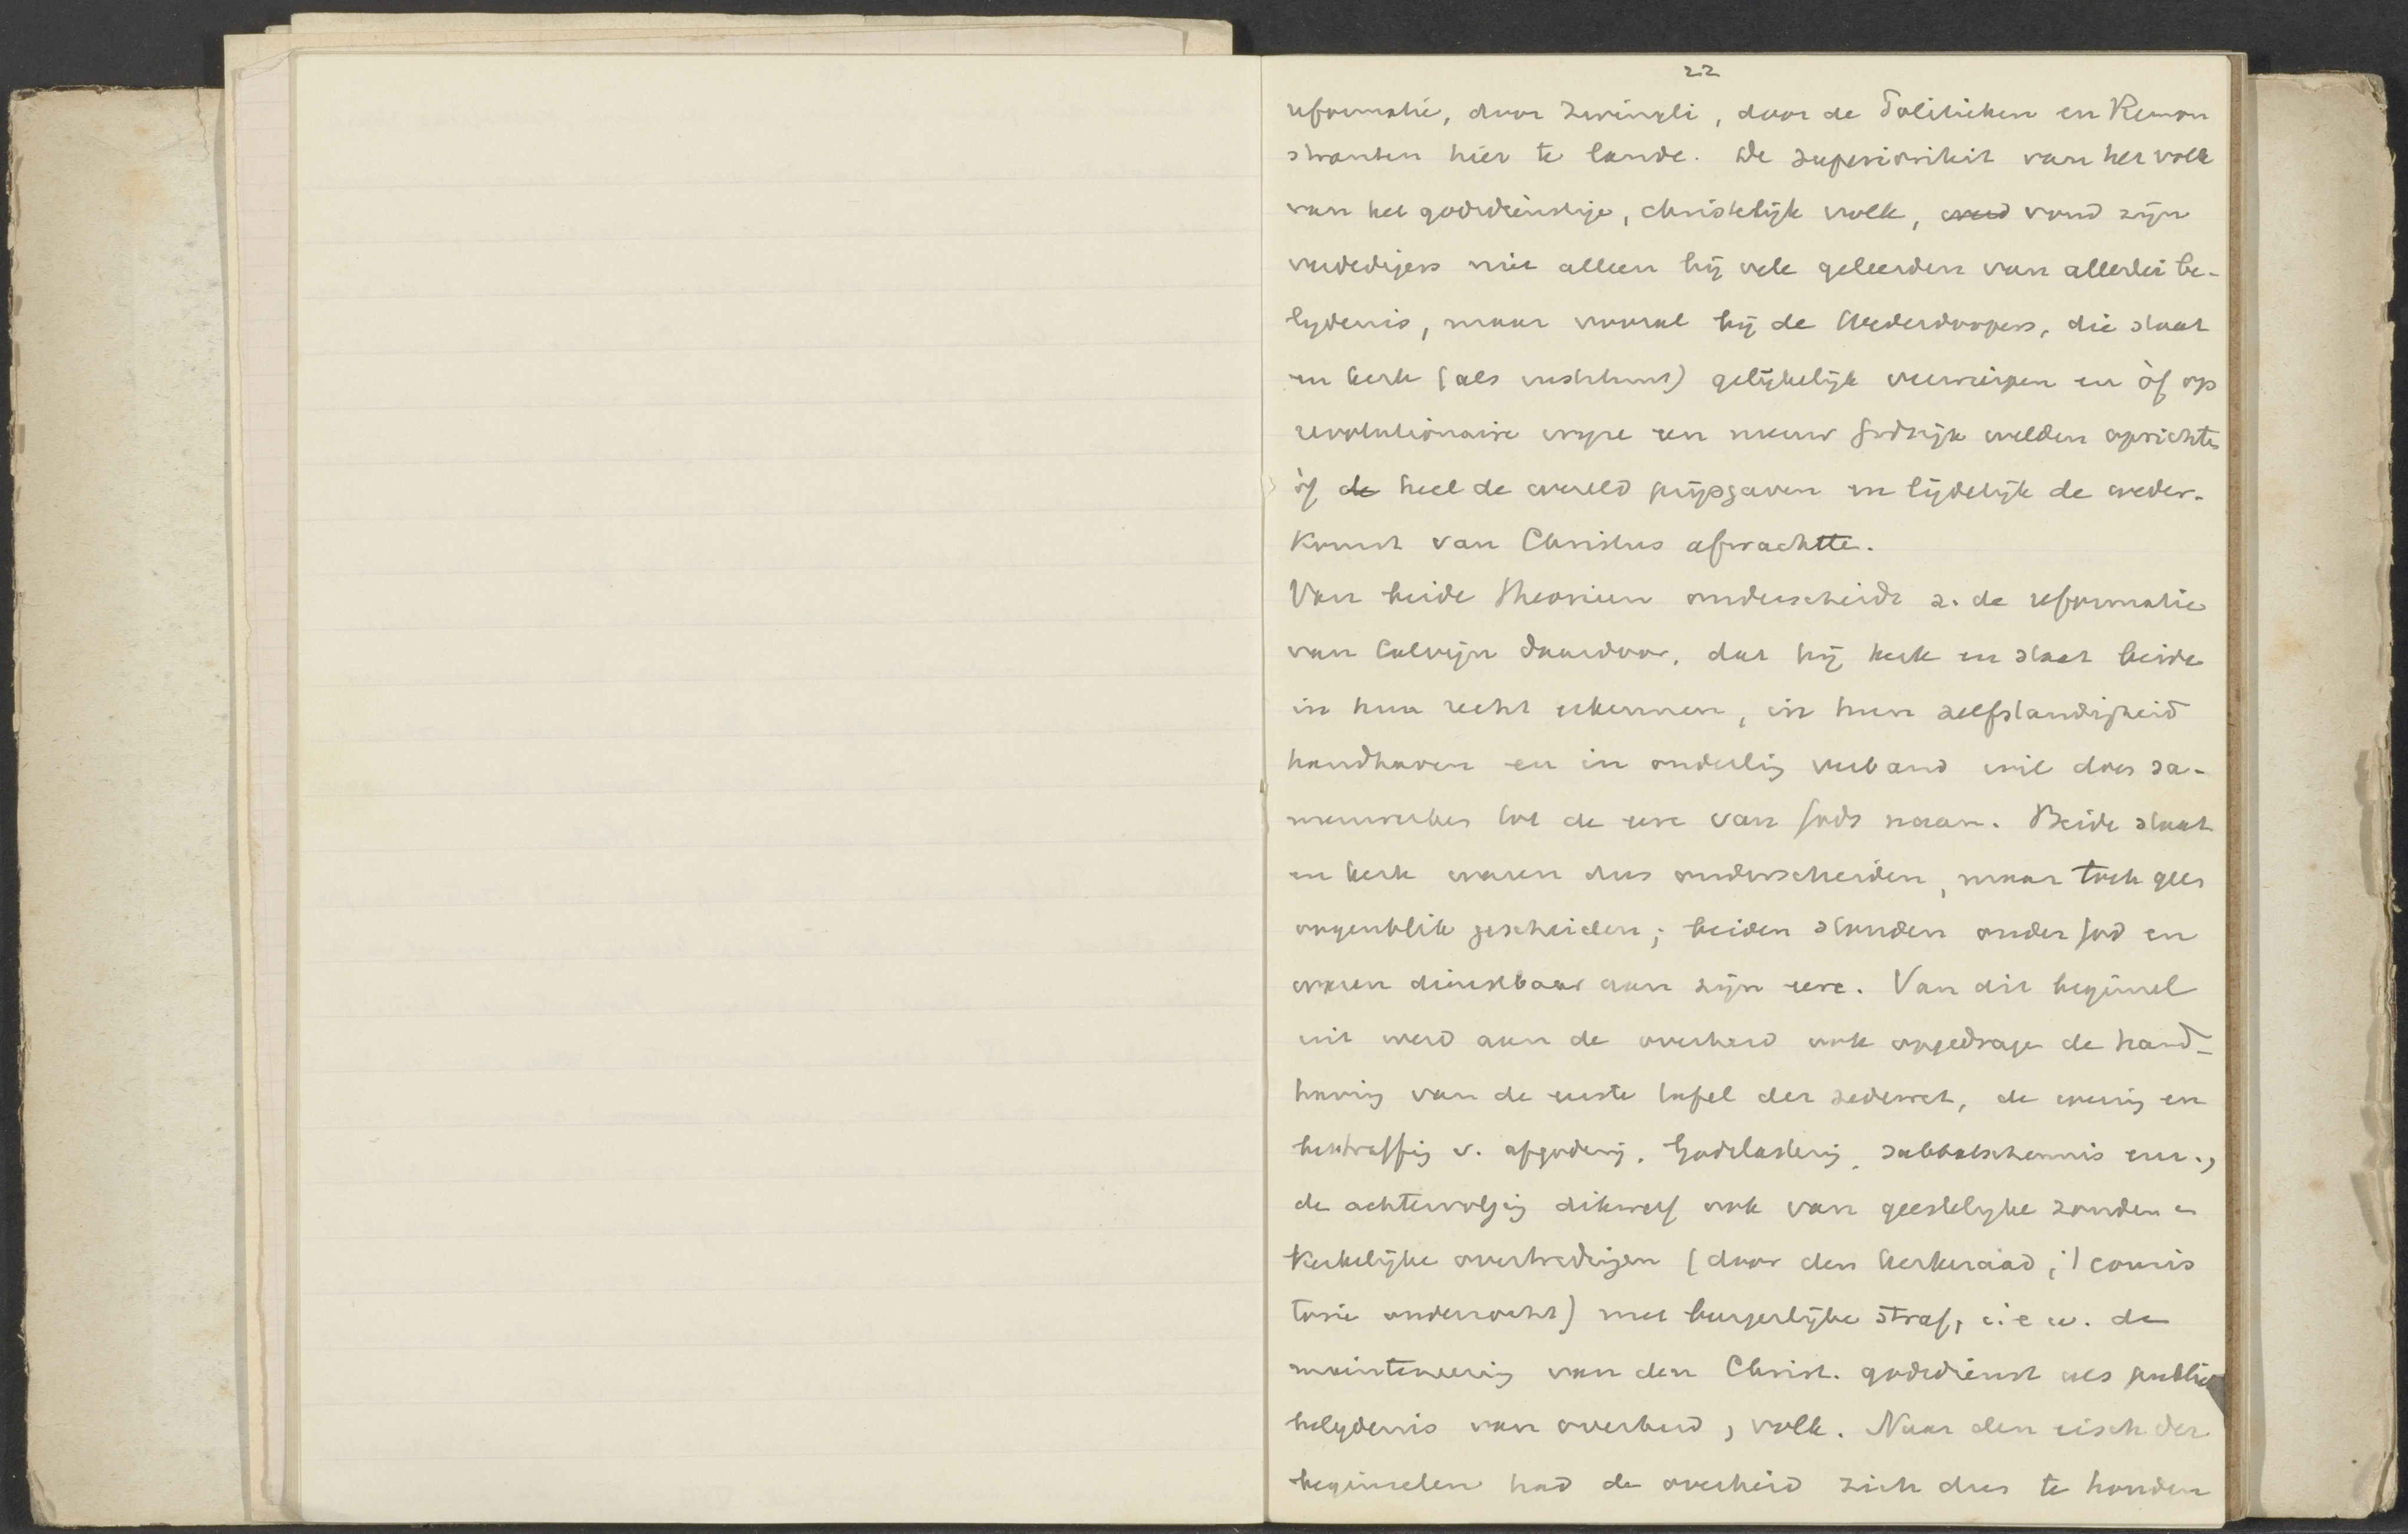 22
reformatie, door Zwingli, door de Politieken en Remon
stranten hier te lande. De superioriteit van het volk
van het godsdienstige, christelijk volk, werd vond zijn
verdedigers niet alleen bij vele geleerden van allerlei be-
lydenis, maar vooral bij de Wederdoopers, die staat
en kerk (als instituut) gelijkelijk verwierpen en òf op
revolutionaire wijze een nieuw Godsrijk wilden oprichten
òf de heel de wereld prijsgaven en lijdelijk de weder-
komst van Christus afwachtte.
Van beide theorieen onderscheidt z. de reformatie
van Calvijn daardoor, dat hij kerk en staat beide
in hun recht erkennen, in hun zelfstandigheid
handhaven en in onderling verband wil doen sa-
menwerken tot de eere van Gods naam. Beide staat
en kerk waren dus onderscheiden, maar toch geen
oogenblik gescheiden; beiden stonden onder God en
waren dienstbaar aan zijn eere. Van dit beginsel
uit werd aan de overheid ook opgedragen de hand-
having van de eerste tafel der zedewet, de wering en
bestraffing v. afgoderij, Godslastering, sabbatschennis enz.,
de achtervolging dikwerf ook van geestelyke zonden en
kerkelijke overtredingen (door den kerkeraad, 't consis
torie onderzocht) met burgerlijke straf, i. e. w. de
mainteneering van den Christ. godsdienst als publieke
belydenis van overheid, volk. Naar den eisch der
beginselen had de overheid zich dus te houden